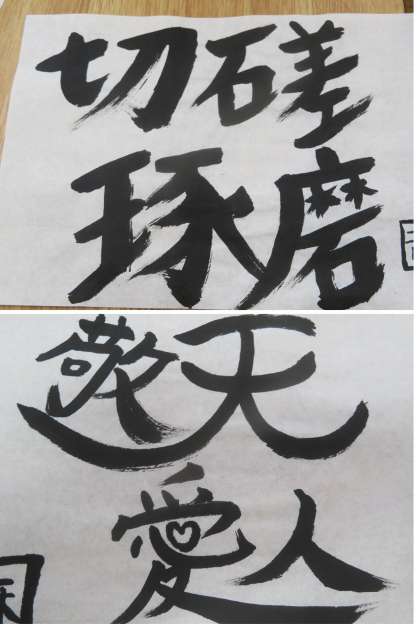 切磋
琢磨
敬天
愛人